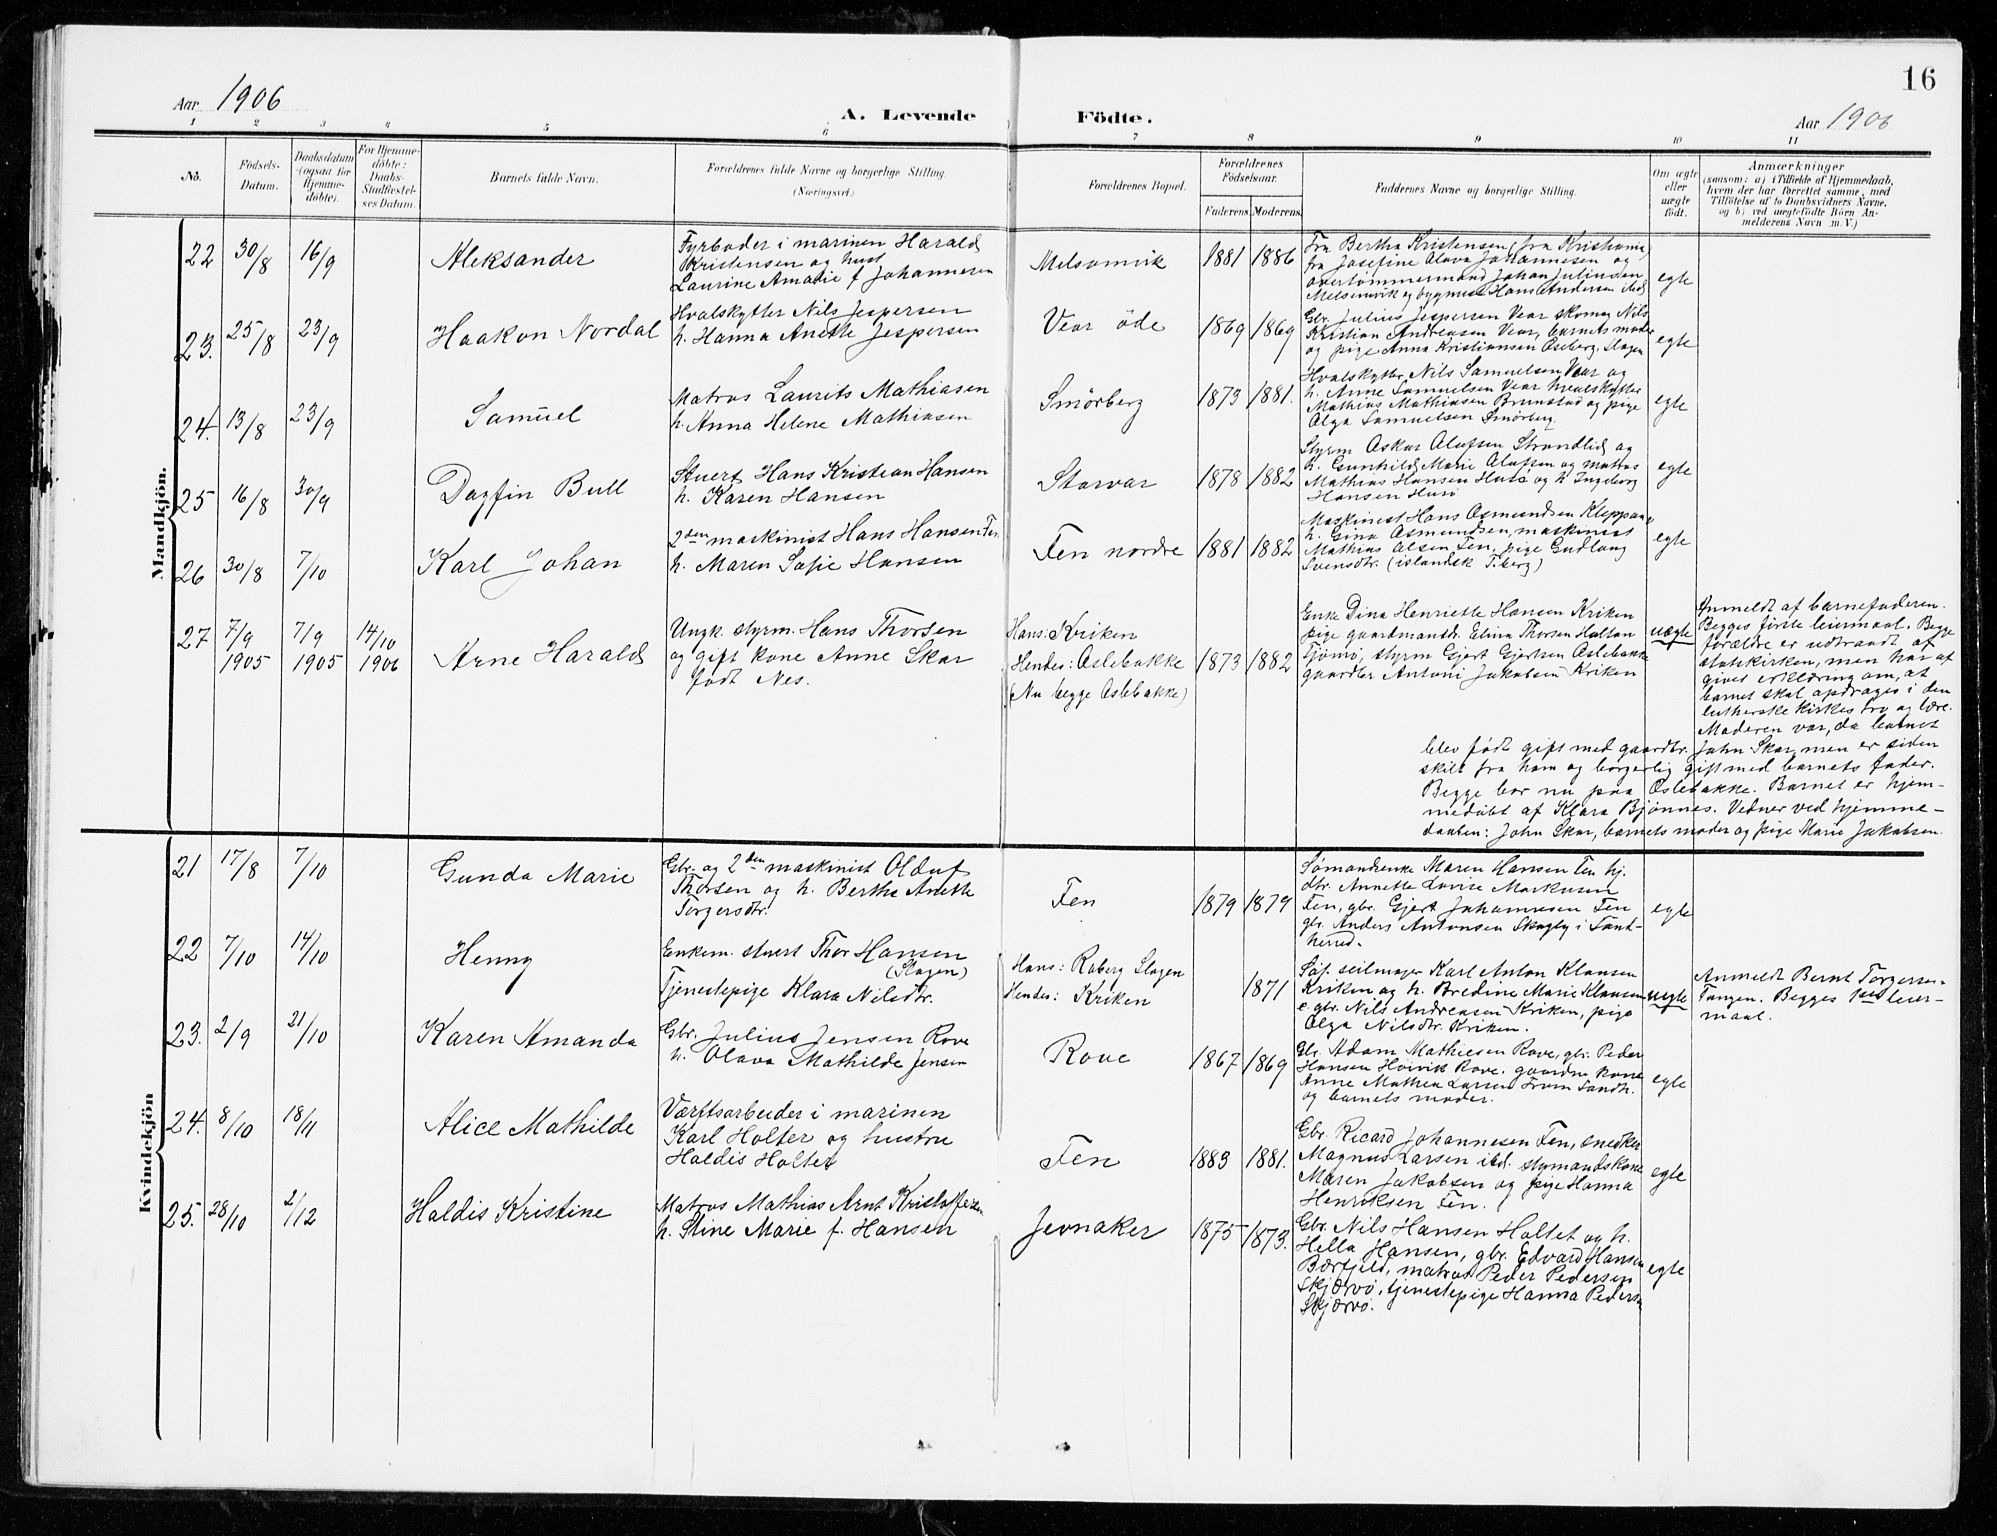 16
Aar 1906
A. Levende Födte.
Aar 1906
1 2 3 4 5 6 7 8 9 10 11
No.
Födsels-
Datum.
Daabsdatum
(ogsaa for
Hjemme-
döbte).
For Hjemme-
döbte:
Daabs-
Stadfæstel-
ses Datum.
Barnets fulde Navn.
Forældrenes fulde Navne og borgerlige Stilling.
(Næringsvei.)
Forældrenes Bopæl.
Forældrenes
Födselsaar.
Faderens. Moderens.
Faddernes Navne og borgerlige Stilling.
Om ægte
eller
uægte
födt.
Anmærkninger
(saasom: a) i Tilfælde af Hjemmedaab,
hvem der har forrettet samme, med
Tilföielse af to Daabsvidners Navne,
og b) ved uægtefödte Börn An-
melderens Navn m. V.)
Mandkjön.
22 30/8 16/9 Aleksander
Fyrböder i marinen Harald
Kristensen og hust
Laurine Amalie f Johannesen
Melsomvik 1881 1886
Fra Bertha Kristensen (fra Kristiania)
fra Josefine Olava Johannesen og
overtömmermand Johan Juliussen
Melsomvik og bygmest Hans Andersen ibid
egte
23. 25/8 23/9 Haakon Nordal
Hvalskytter Nils Jespersen
h. Hanna Anette Jespersen
Vear öde 1869 1869
Gbr. Julius Jespersen Vear skomag Nils
Kristian Andreasen Vear, barnets moder
og pige Anna Kristiansen Oseberg, Slagen
egte
24. 13/8 23/9 Samuel
Matros Laurits Mathiasen
h. Anna Helene Mathiasen
Smörberg 1873 1881.
Hvalskytter Nils Samuelsen Vear og
h. Anne Samuelsen Vear hvalskytter
Mathias Mathiasen Brunstad og pige
Olga Samuelsen Smörberg.
egte
25 16/8 30/9 Dagfin Bull
Stuert Hans Kristian Hansen
h. Karen Hansen
Storvar 1878 1882
Styrm Oskar Olafsen Strandlid og
h. Gunhild Marie Olafsen og matros
Mathias Hansen Husö og h Ingeborg
Hansen Husö
egte
26 30/8 7/10 Karl Johan
2den maskinist Hans Hansen Fen
h. Maren Sofie Hansen
Fen nordre 1881 1882
Maskinist Hans Osmundsen Kleppan
h. Gina Osmundsen, maskinist
Mathias Olsen Fen, pige Gudlaug
Svensdtr. (islandsk T.berg)
egte
27 7/9 1905 7/9 1905 14/10 1906 Arne Harald
Ungk. styrm. Hans Thorsen
og gift kone Anne Skar
født Nes.
Hans: Kriken
Hendes: Oslebakke
(Nu begge Oslebakke)
1873 1882
Enke Dina Henriette Hansen Kriken
pige gaardmandsdr. Elina Thorsen Holtan
Tjömö, styrm Gjert Gjertsen Oslebakke
gaardbr Antoni Jakobsen Kriken
uægte
Anmeldt af barnefaderen.
Begges förste leiermaal. Begge
forældre er udtraadt af
statskirken, men har af
givet erklæring om, at
barnet skal opdrages i den
lutherske kirkes tro og lære.
Moderen var, da barnet
blev födt gift med gaardbr. John Skar, men er siden
skilt fra ham og borgerlig gift med barnets fader.
Begge bor nu paa Oslebakke. Barnet er hjem-
medöbt af Klara Bjönnes. Vidner ved hjemme-
daaben: John Skar, barnets moder og pige Marie Jakobsen.
Kvindekjön
21 17/8 7/10 Gunda Marie
Gbr. og 2den maskinist Olduf
Thorsen og h. Berthe Anette
Torgersdtr.
Fen 1879 1879
Sømandsenke Maren Hansen Fen hj.
dtr. Annette Lovise Markusen
Fen, gbr. Gjert Johannesen Fen
gbr. Anders Antonsen Skagby i Sand-
herred.
egte
22 7/10 14/10 Henny
Enkem. stuert Thor Hansen
(Slagen)
Tjenestepige Klara Nilsdtr.
Hans: Raberg Slagen
Hendes: Kriken
1871
Söf. seilmager Karl Anton Klausen
Kriken og h. Bredine Marie Klausen
e. gbr. Nils Andreasen Kriken, pige
Olga Nilsdtr. Kriken.
uegte
Anmeldt Bernt Torgersen
Tangen. Begges 1ste leier-
maal.
23. 2/9 21/10 Karen Amanda
Gbr. Julius Jensen Rove
h. Olava Mathilde Jensen
Rove 1867 1869
Gbr. Adam Mathiesen Rove, gbr. Peder
Hansen Hoivik Rove. gaardm kone
Anne Mathea Larsen Fram Sandh.
og barnets moder.
egte
24. 8/10 18/11 Alice Mathilde
Værftsarbeider i marinen
Karl Holter og hustru
Haldis Holter
Fen 1883 1881.
Gbr. Ricard Johannesen Fen, snedker
Magnus Larsen ibd. styrmandskone
Maren Jakobsen og pige Hanna
Henriksen Fen.
egte
25. 28/10 2/12 Haldis Kristine
Matros Mathias Arnt Kristoffersen
h. Stine Marie f. Hansen
Jevnaker 1875 1873.
Gbr. Nils Hansen Holtet og h.
Hella Hansen, gbr. Edvard Hansen
Bærfjeld, matros Peder Pedersen
Skjærvö, tjenestepige Hanna Pedersen
Skjærvö.
egte